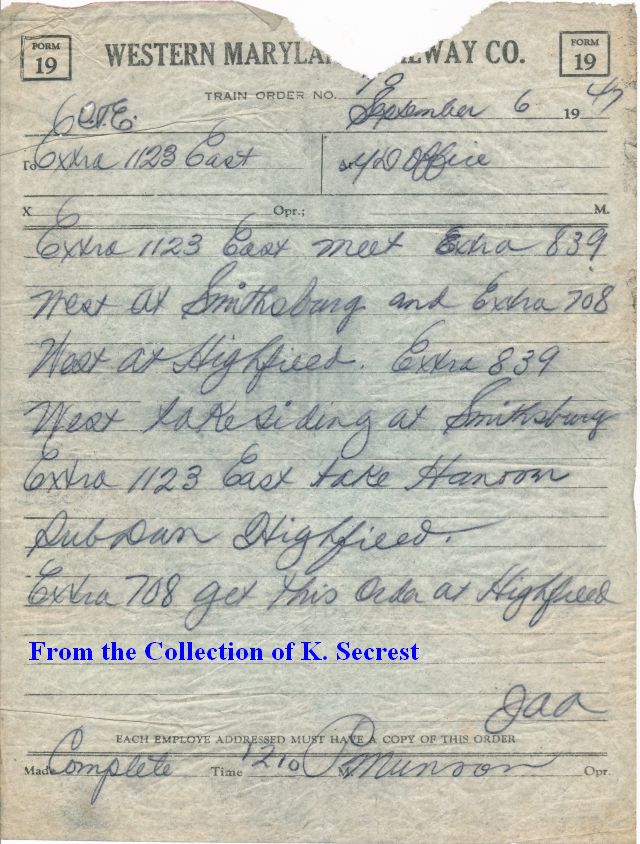 FORM 19
WESTERN MARYLA WAY CO.
FORM 19
TRAIN ORDER NO.
September 6 1947
C&E
To Extra 1123 East At YD Office
X Opr.; M.
Extra 1123 East meet Extra 839
West at Smithsburg and Extra 708
West at Highfield. Extra 839
West take siding at Smithsburg
Extra 1123 East take Hanover
Subdan Highfield.
Extra 708 get this order at Highfield
From the Collection of K. Secrest
JAA
EACH EMPLOYE ADDRESSED MUST HAVE A COPY OF THIS ORDER
Made Complete Time 1210 P M. Munson Opr.